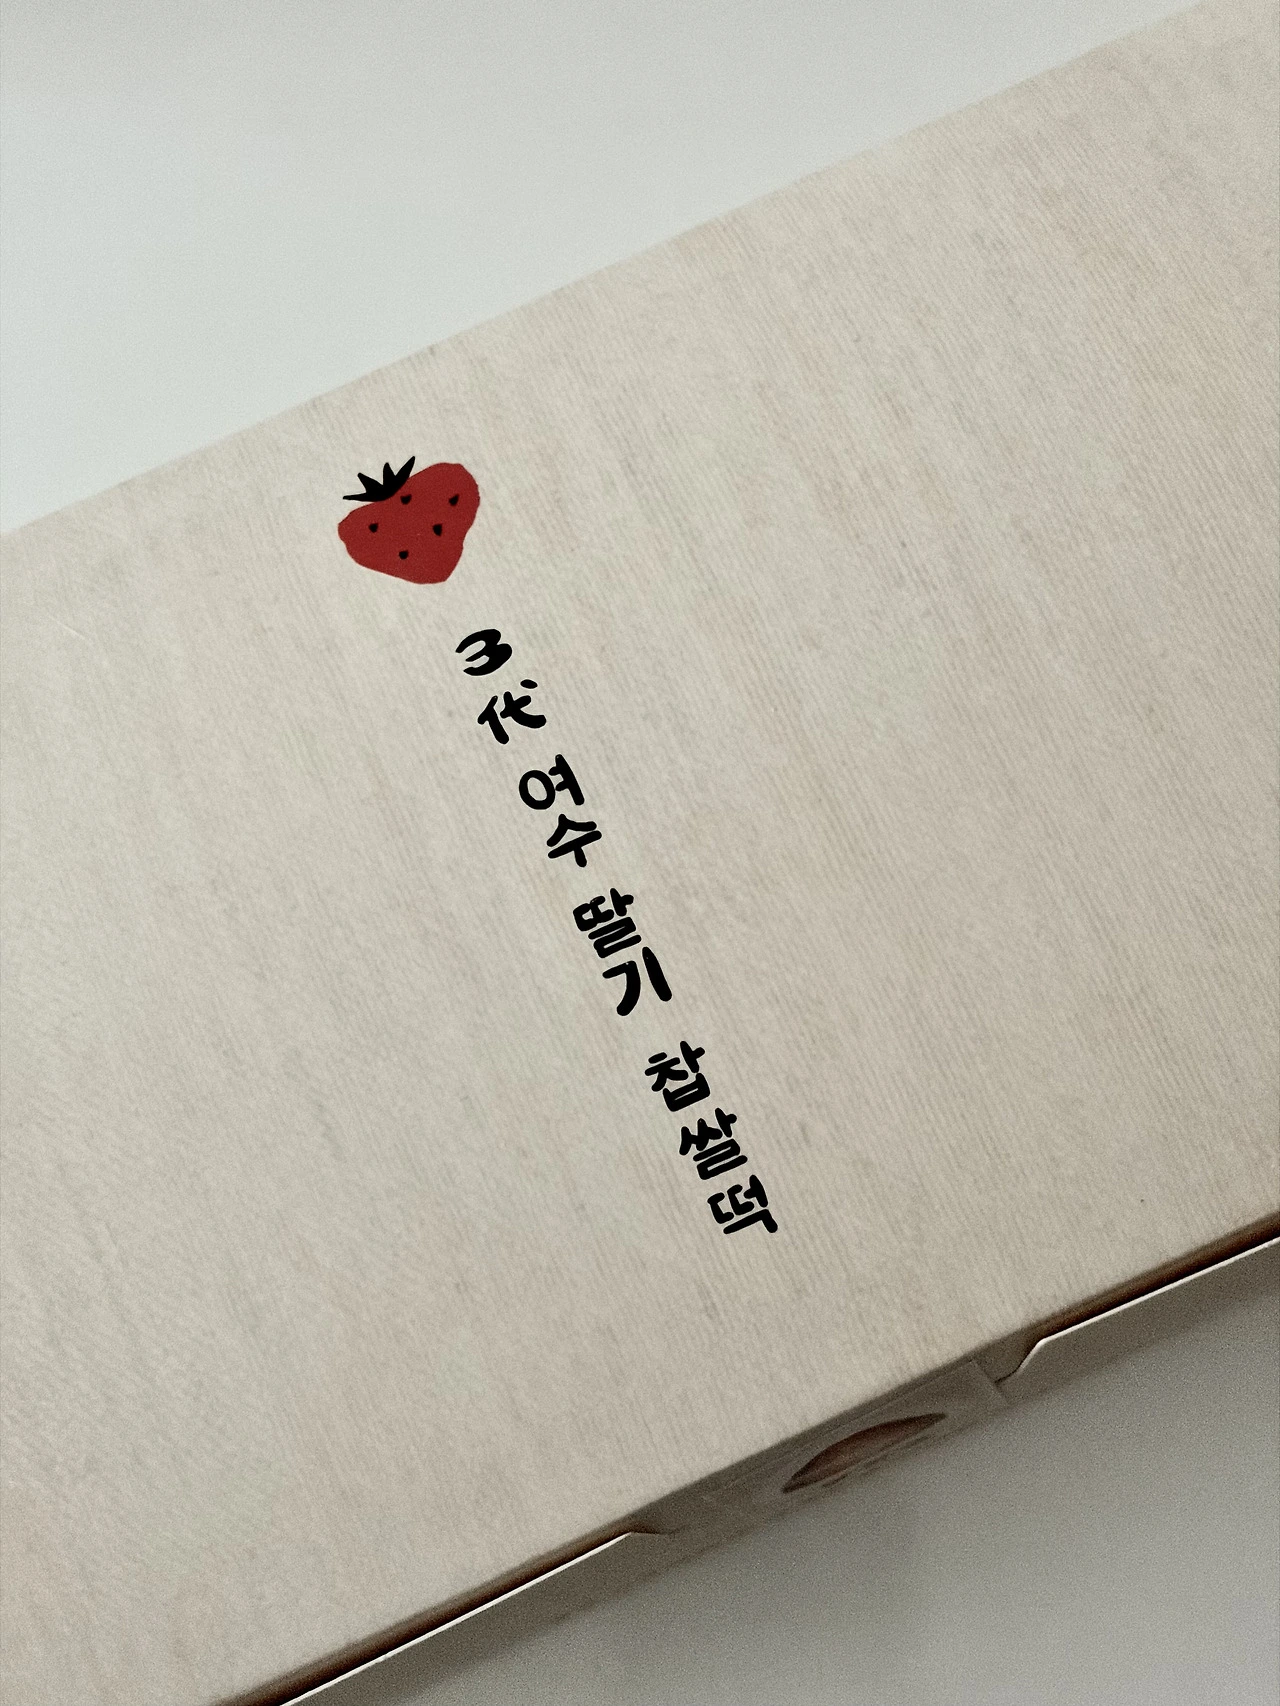 3代 여수 딸기 찹쌀떡